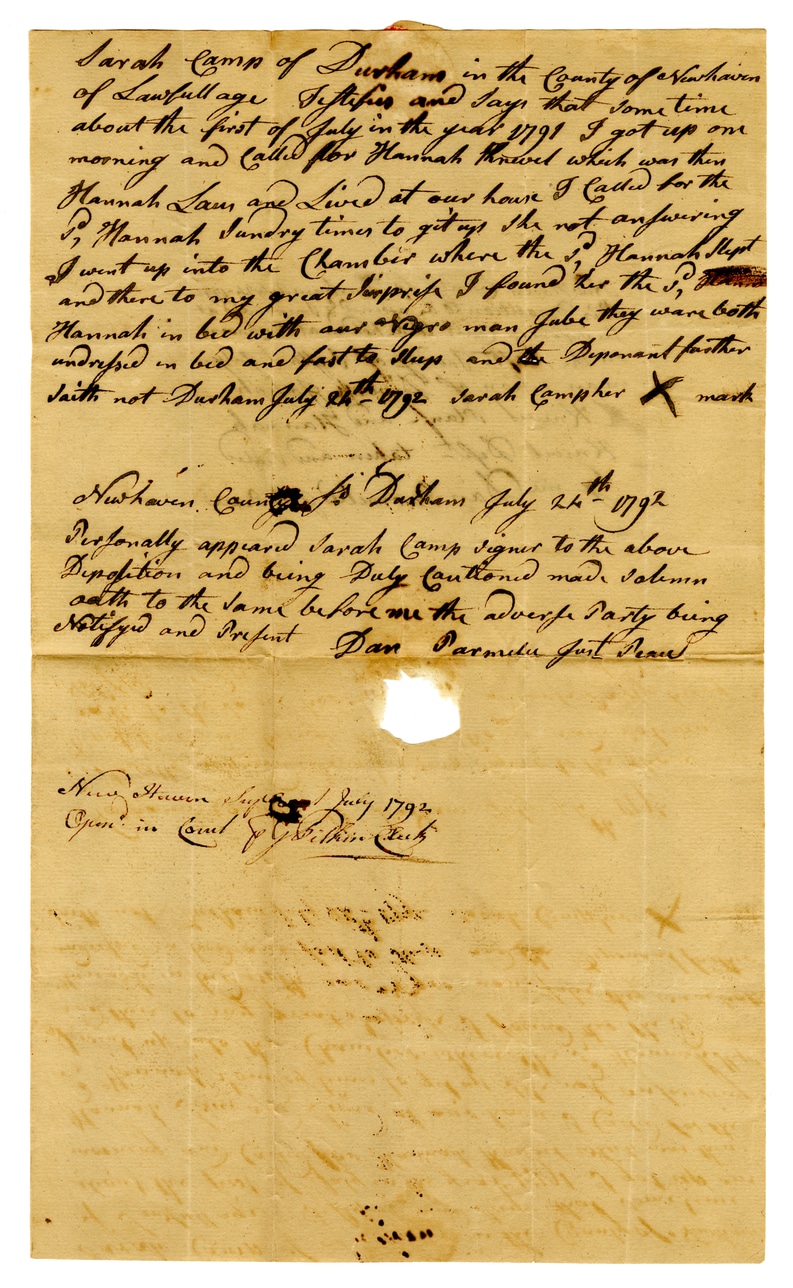 Sarah Camp of Durham in the County of Newhaven
of Lawfull age Testifies and Says that some time
about the first of July in the year 1791 I got up one
morning and Called for Hannah which was then
Hannah Laws and Lived at our house I Called for the
sd, Hannah Sundry times to git up She not answering
I went up into the Chamber where the sd, Hannah Slept
and there to my great Surprise I found her the sd,
Hannah in bed with our Negro man Jube they ware both
undressed in bed and fast to sleep and the Deponant farther
Saith not Durham July 24th 1792 Sarah Camp her X mark
Newhaven County Ss Durham July 24th 1792
Personally appeared Sarah Camp signer to the above
Deposition and being Duly Cautioned made Solemn
oath to the Same before me the adverse Party being
Notifyed and Present Dan Parmele Just Peace
New Haven July 1792
Opend in Court Pr J Pitkin Clerk